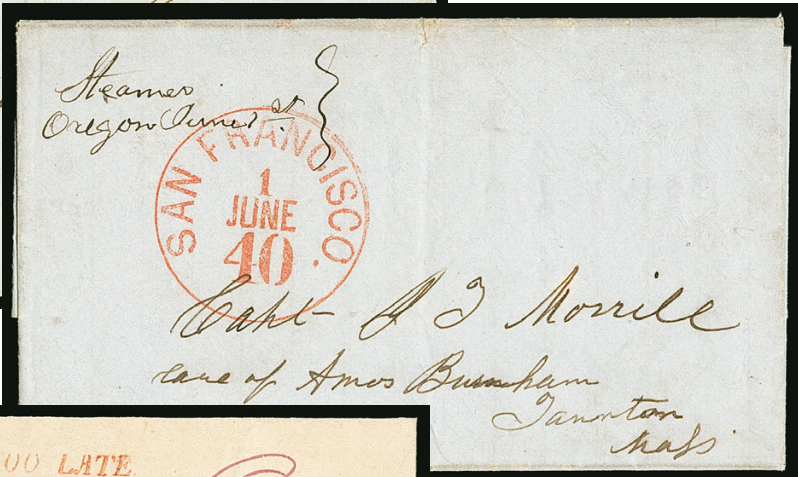 Steamer
Oregon June 1st
SAN FRANCISCO.
1
JUNE
40
Capt J T Morrill
care of Amos Burnham
Taunton
Mass
OO LATE